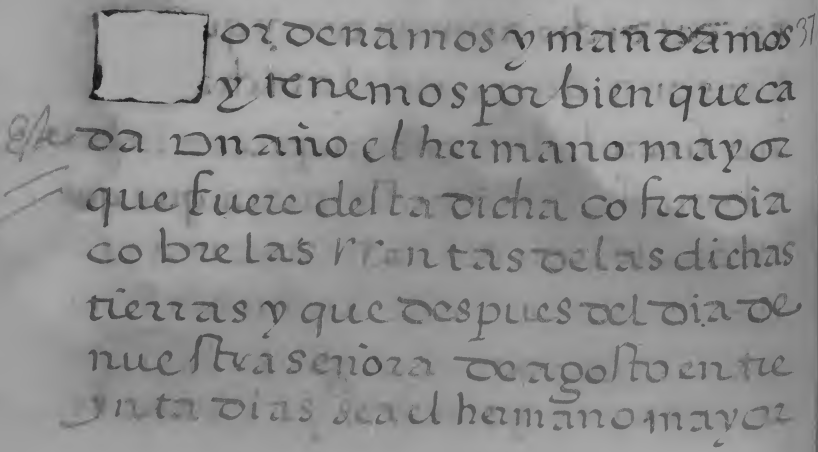 ordenamos y mandamos 37
y tenemos por bien que ca
da un año el hermano mayor
que fuere desta dicha cofradia
cobre las rrentas de las dichas
tierras y que despues del dia de
nuestra señora de agosto en tre
ynta dias sea el hermano mayor